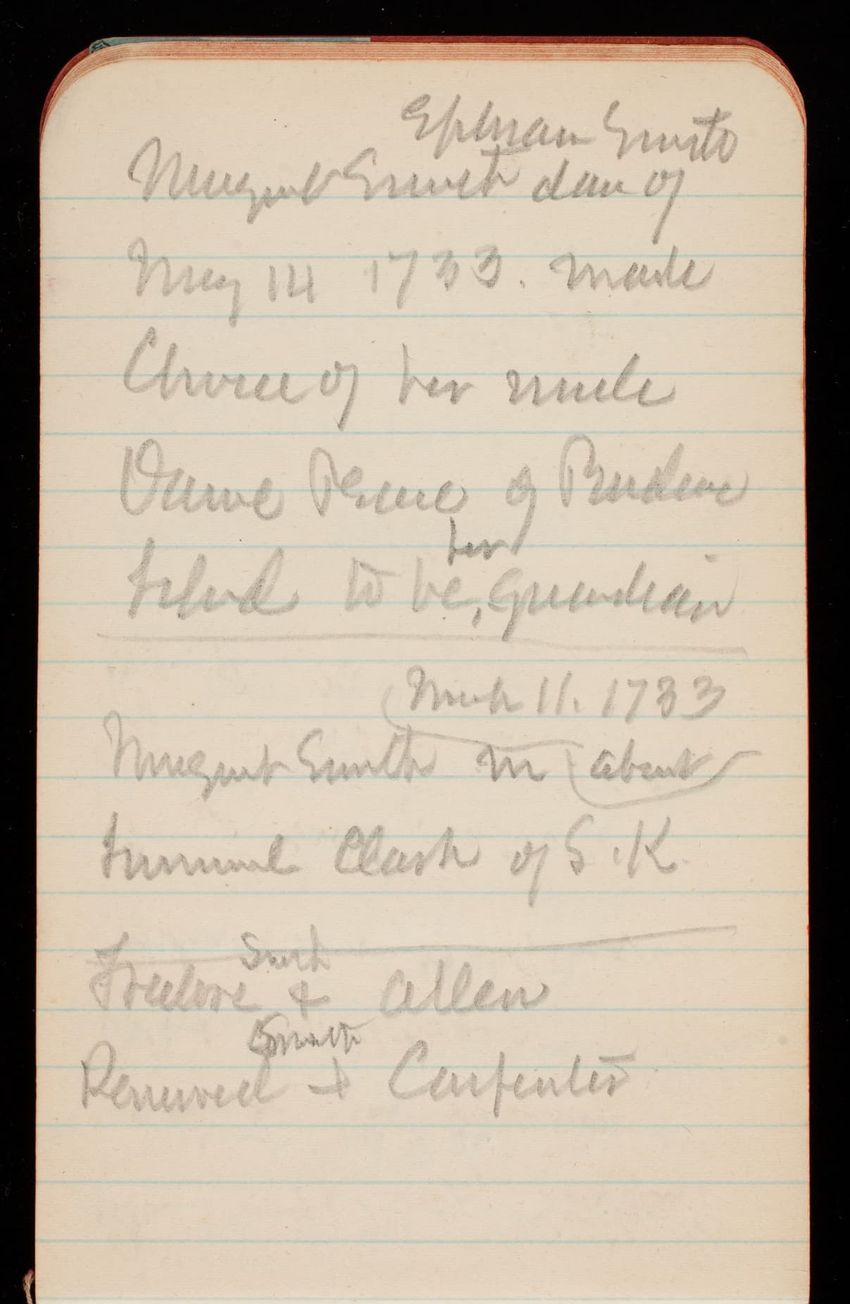 Ephraim Smith
Margaret Smith dau of
May 14 1733. made
Choice of her uncle
of Prudence
Island to be, her Guardian
March 11. 1733
Margaret Smith m about
Samuel Clark of S. K.
Freelove Smith & Allen
Renewed Smith & Carpenter